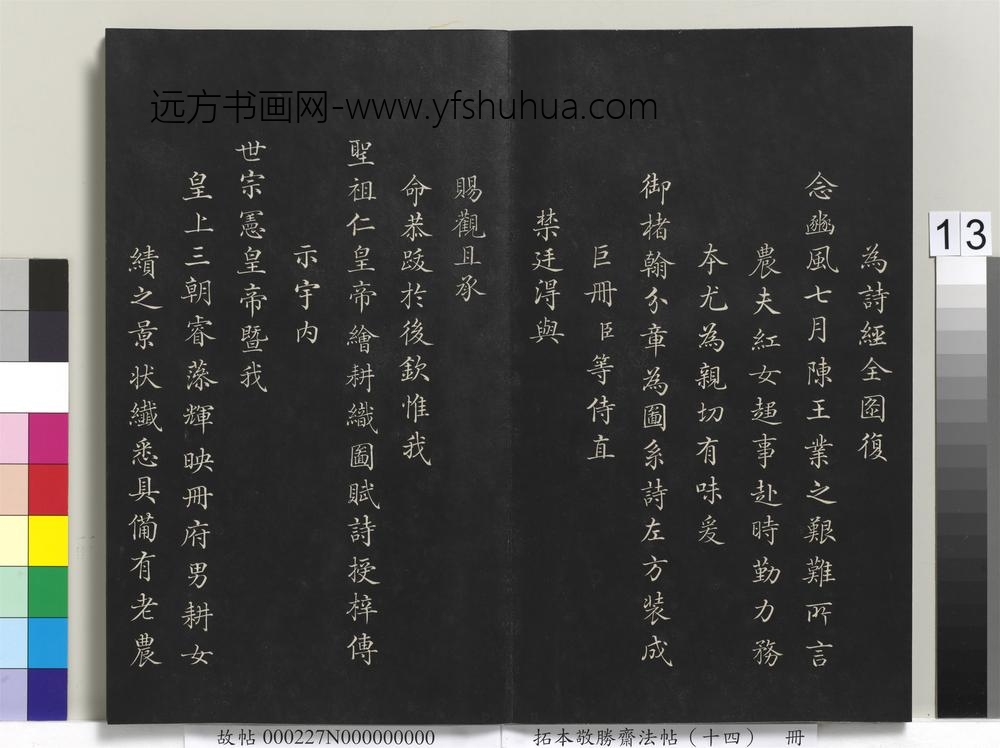 远方书画网-www.yfshuhua.com
為詩經全圖復
念豳風七月陳王業之艱難所言
農夫紅女趨事赴時勤力務
本尤為親切有味爰
御楮翰分章為圖系詩左方裝成
巨冊臣等侍直
禁廷淂與
賜觀且承
命恭跋於後欽惟我
聖祖仁皇帝繪耕織圖賦詩授梓傳
示宇内
世宗憲皇帝暨我
皇上三朝睿藻輝映冊府男耕女
績之景状纎悉具備有老農
13
故帖000227N000000000
拓本敬勝齋法帖（十四） 冊